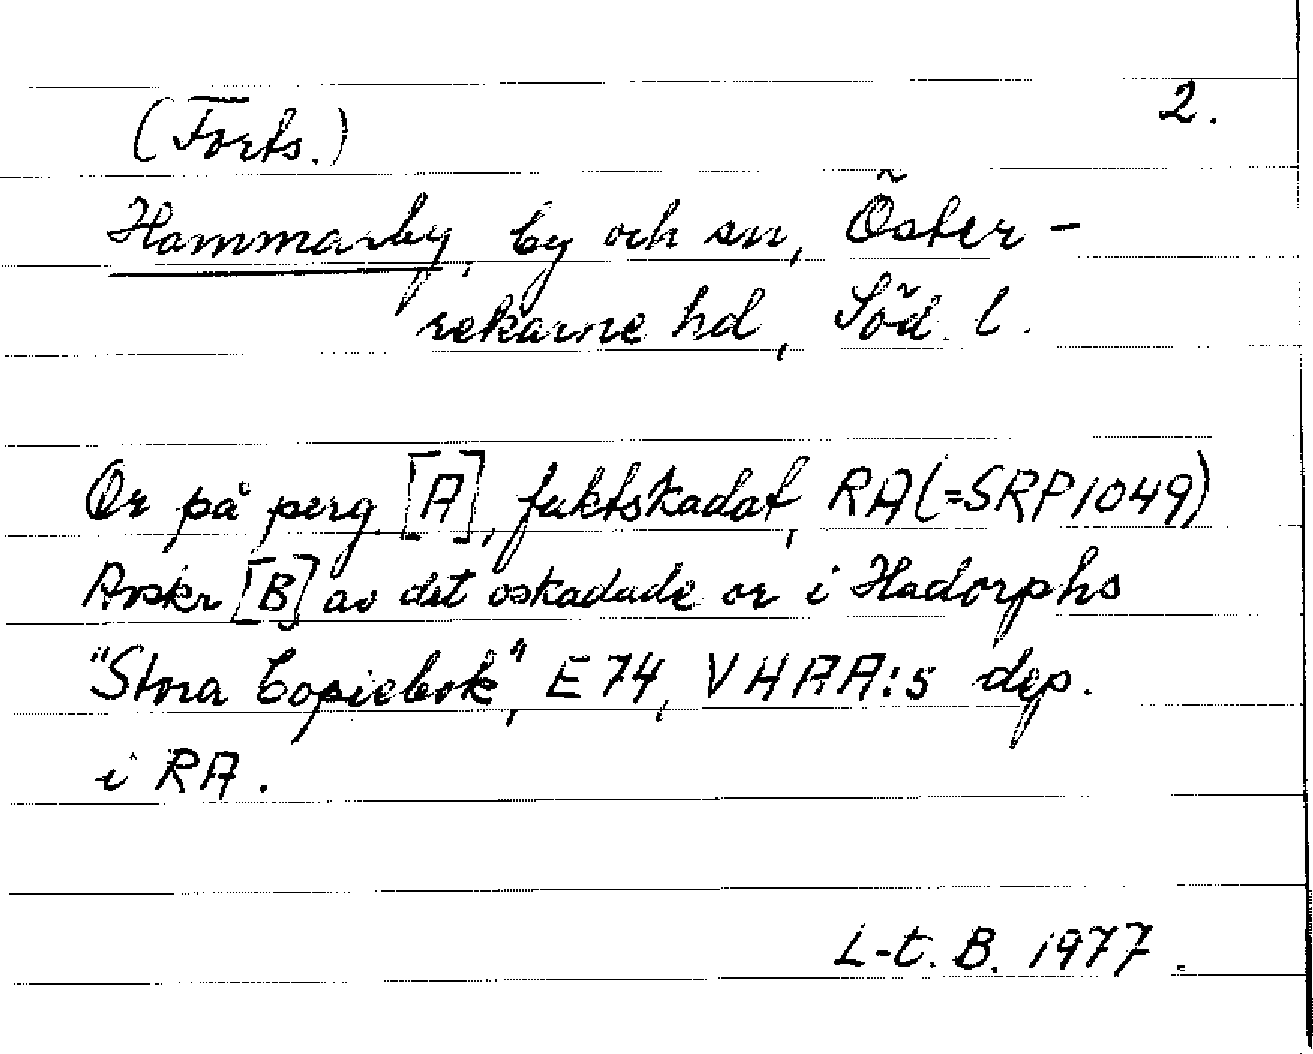 (Forts.) 2.
Hammarby, by och sn, Öster-
rekarne hd, Söd. l.
Or på perg. [A], fuktskadat, RA (=SRP 1049)
Avskr [B] av det oskadade or i Hadorphs
"Stora Copiebok", E 74, VHAA:s dep.
i RA.
L-t. B. 1977.